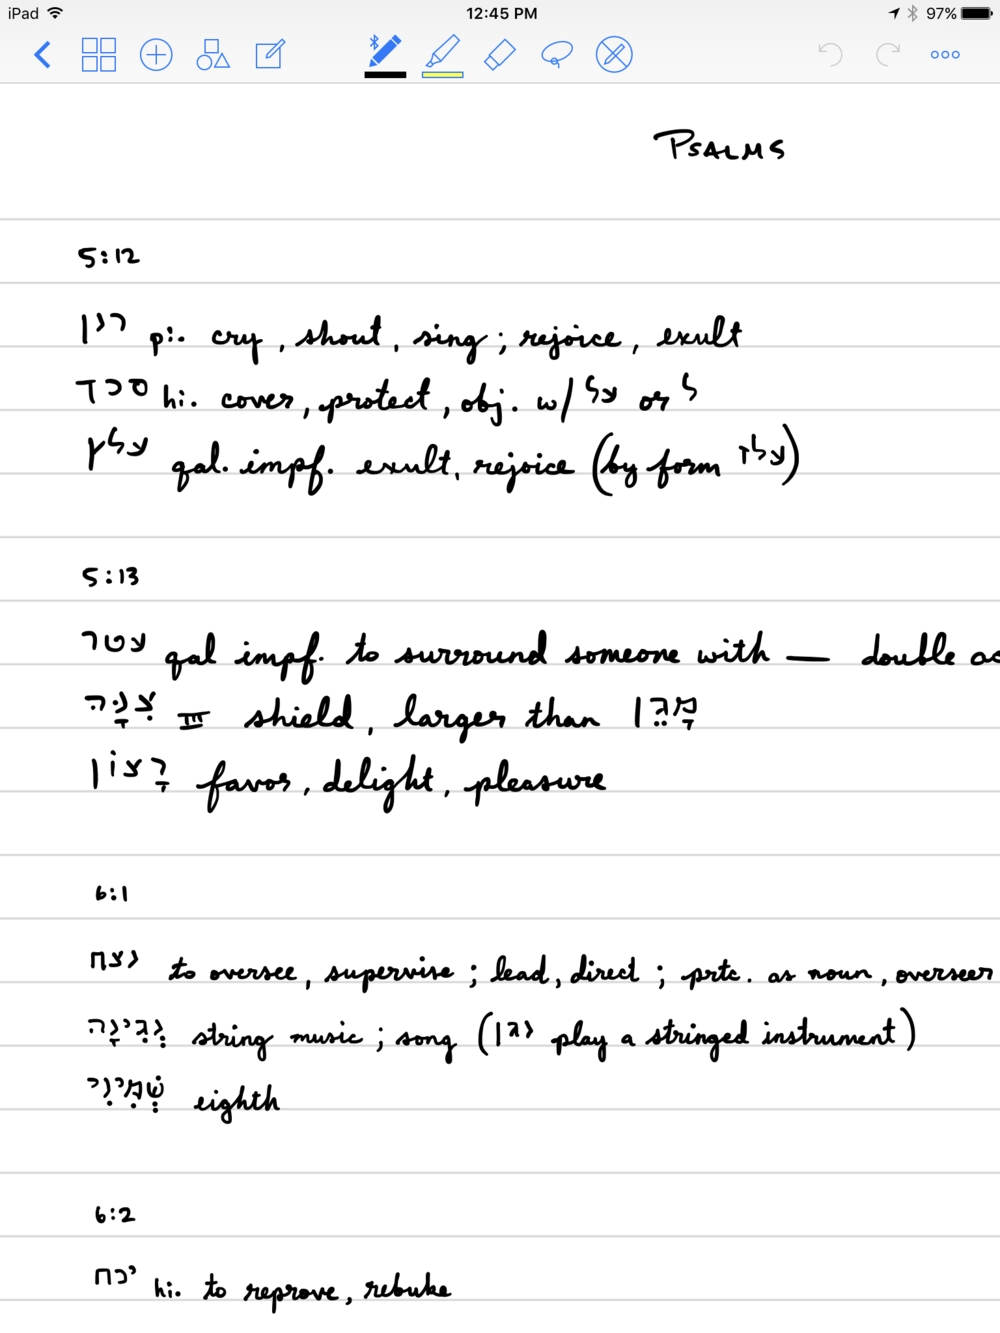 iPad 12:45 PM 97%
PSALMS
5:12
רנן pi. cry, shout, sing; rejoice, exult
סכך hi. cover, protect, obj. w/ על or ל
עלץ qal. impf. exult, rejoice (by form עלז)
5:13
עטר qal impf. to surround someone with — double ac
צִנָּה III shield, larger than מָגֵן
רָצוֹן favor, delight, pleasure
6:1
נצח to oversee, supervise; lead, direct; prtc. as noun, overseer
נְגִינָה string music; song (נגן play a stringed instrument)
שְׁמִינִי eighth
6:2
יכח hi. to reprove, rebuke